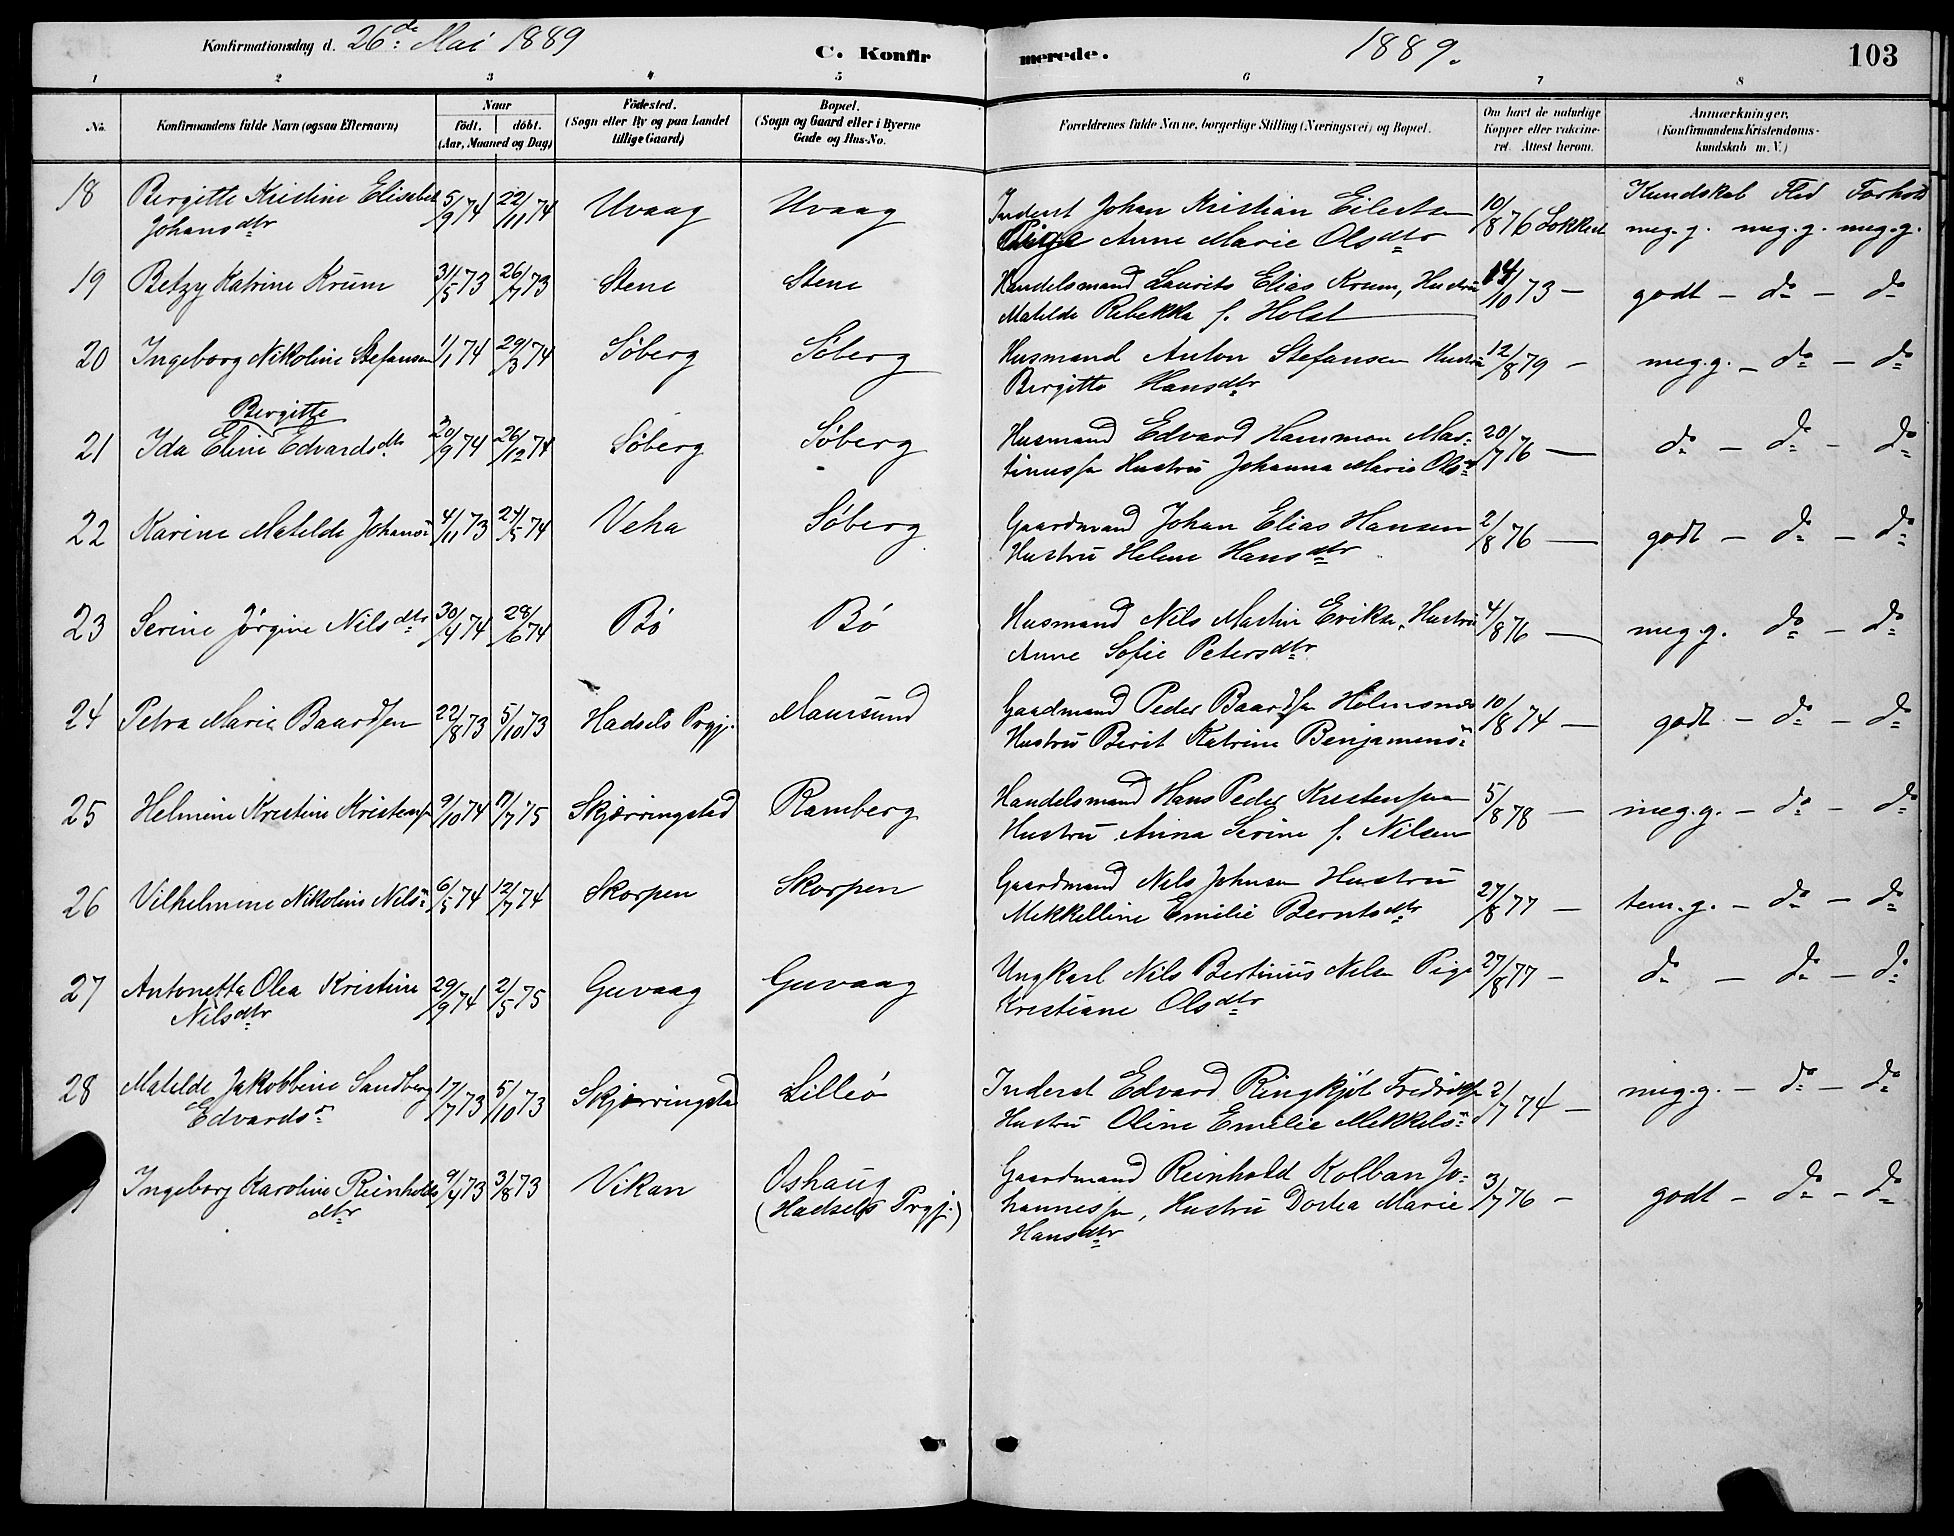 Konfirmationsdag d. 26de Mai 1889 C. Konfir merede. 1889. 103
1 2 3 4 5 6 7 8
No. Konfirmandens fulde Navn (ogsaa Efternavn) Naar født. døbt. (Aar, Maaned og Dag) Fødested. (Sogn eller By og paa Landet tillige Gaard) Bopæl. (Sogn og Gaard eller i Byerne Gade og Hus-No. Forældrenes fulde Navne, borgerlige Stilling (Næringsvei) og Bopæl. Om havt de naturlige Kopper eller vakcineret. Attest herom. Anmærkninger. (Konfirmandens Kristendomskundskab m. V.)
Kundskab Flid Forhold
18 Bergitte Kristine Elisabet 5/9 74 22/11 74 Uvaag Uvaag Inderst Johan Kristian Eilertsen 10/8 76 Lokkert meg.g. meg.g. meg.g.
Johansdtr Pige Anne Marie Olsdtr
19 Betzy Katrine Krum 31/5 73 26/7 73 Stene Stene Handelsmand Laurits Elias Krum, Hustru 14/10 73 — godt - do - do
Matilde Rebekka f. Holst
20 Ingeborg Nikoline Stefansen 1/1 74 29/3 74 Søberg Søberg Husmand Anton Stefansen Hustru 12/8 79 - meg.g. - do - do
Bergitte Hansdtr
Bergitte
21 Ida Eline Edvardsdtr 20/9 74 26/12 74 Søberg Søberg Husmand Edvard Hammon Mar- 20/7 76 — do - do - do
tinussn Hustru Johanna Marie Ols"
22 Karine Matilde Johans" 4/11 73 24/5 74 Veha Søberg Gaardmand Johan Elias Hansen 2/8 76 — godt - do - do
Hustru Helene Hansdtr
23 Serine Jørgine Nilsdtr 30/4 74 28/6 74 Bø Bø Husmand Nils Martin Eriksn, Hustru 4/8 76 — meg.g. do - do
Anne Sofie Petersdtr
24 Petra Marie Baardsen 22/8 73 5/10 73 Hadsels Prgj. Maursund Gaadmand Peder Baardsn Holmsnes 10/8 74 — godt - do - do
Hustru Berit Katrine Benjamens"
25 Helmine Kristine Kristensn 9/10 74 /7 75 Skjærringstad Ramberg Handelsmand Hans Peder Kristensen 5/8 78 — meg.g. - do - do
Hustru Anna Serine f. Nilsen
26 Vilhelmine Nikoline Nils" 6/5 74 12/7 74 Skorpen Skorpen Gaardmand Nils Johnsen Hustru 27/8 77 — tem.g. - do - do
Mekkelline Emilie Berntsdtr
27 Antonetta Olea Kristine 29/9 74 2/5 75 Guvaag Guvaag Ungkarl Nils Bertinius Nilsn Pige 27/8 77 - do - do - do
Nilsdtr Kristiane Olsdtr
28 Matilde Jakobbine Sandberg 17/7 73 5/10 73 Skjærringsta Lilleø Inderst Edvard Ringkjøb Fredriksn 2/7 74 — meg.g. - do - do
Edvards" Hustru Oline Emelie Mekkels"
Ingeborg Karoline Reinholds 9/4 73 3/8 73 Vikan Oshaug Gaardmand Reinhold Kolban Jo- 3/7 76 - godt - do - do
dtr (Hadsels Prgj.) hannessn, Hustru Dortea Marie
Hansdtr